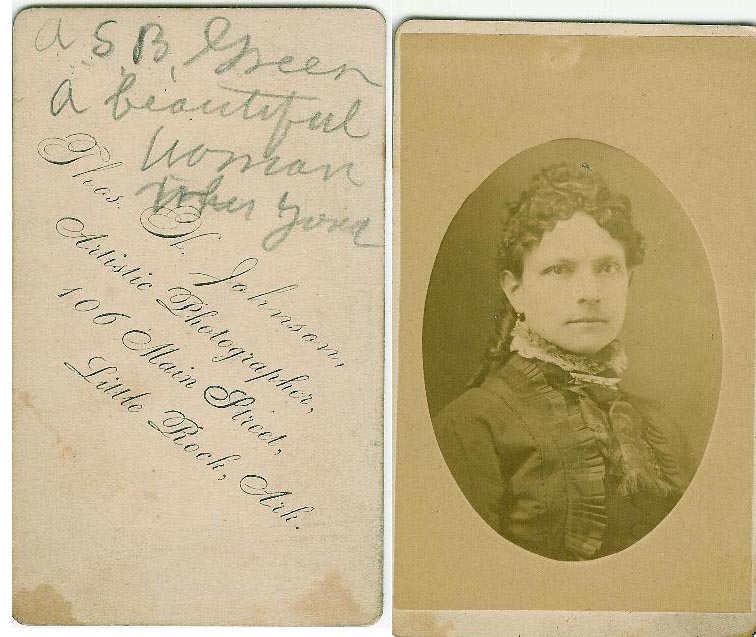 a S. B. Green
A beautiful
woman
when young
Thos. H. Johnson,
Artistic Photographer,
106 Main Street,
Little Rock, Ark.